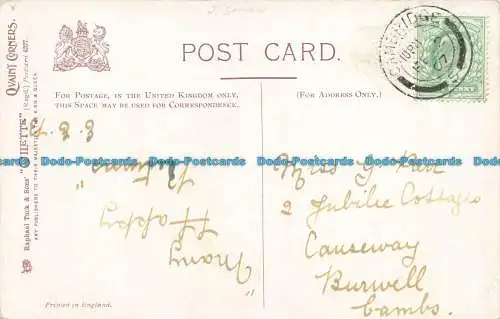 POST CARD.
FOR POSTAGE, IN THE UNITED KINGDOM ONLY,
THIS SPACE MAY BE USED FOR CORRESPONDENCE.
(FOR ADDRESS ONLY.)
QUAINT CORNERS.
Raphael Tuck & Sons' "OILETTE" [Regd.] Postcard 6277
ART PUBLISHERS TO THEIR MAJESTIES THE KING & QUEEN
"Many
Happy
Returns"
Miss G Parr
2 Jubilie Cottages
Causeway
Burwell
Cambs.
Printed in England.
Dodo-Postcards Dodo-Postcards Dodo-Postcards Dodo-Postcards Dodo-Postcards